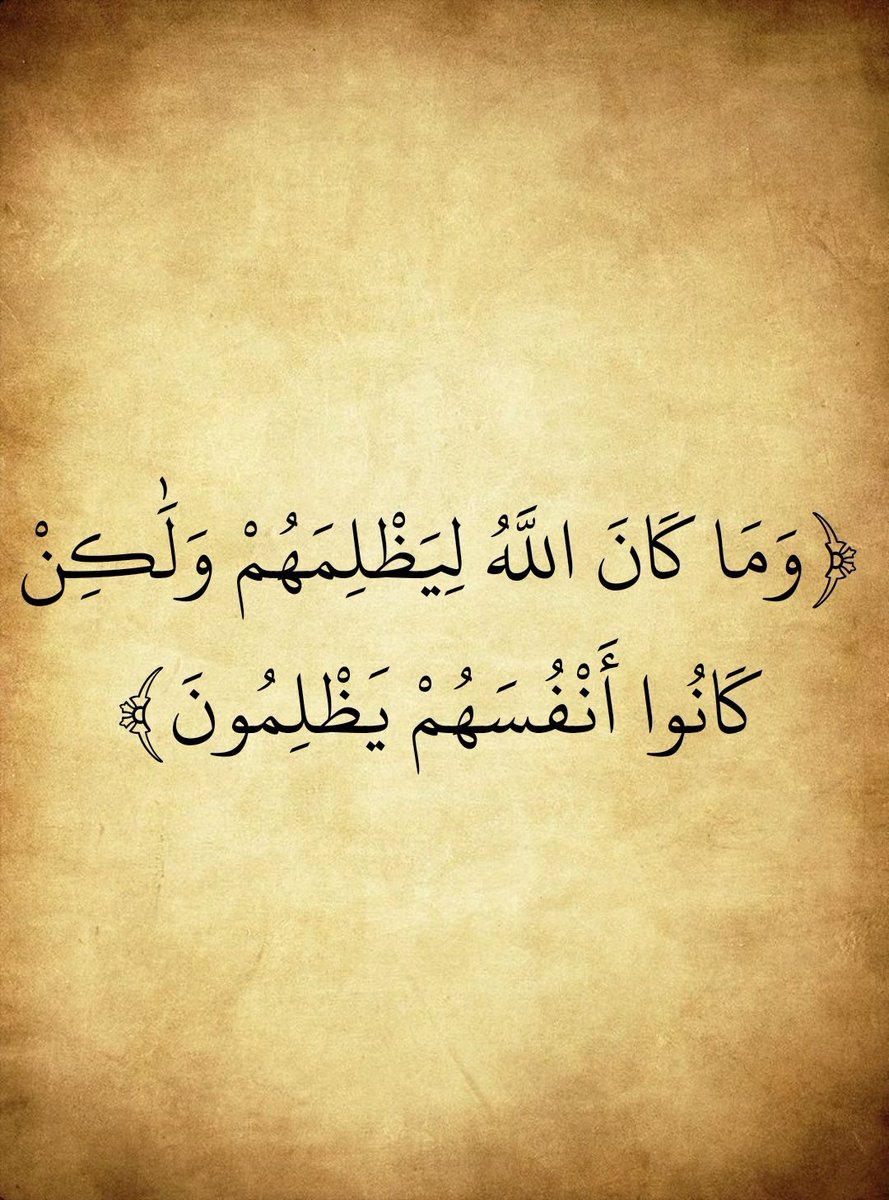 ﴿وَمَا كَانَ اللَّهُ لِيَظْلِمَهُمْ وَلَٰكِنْ
كَانُوا أَنْفُسَهُمْ يَظْلِمُونَ﴾